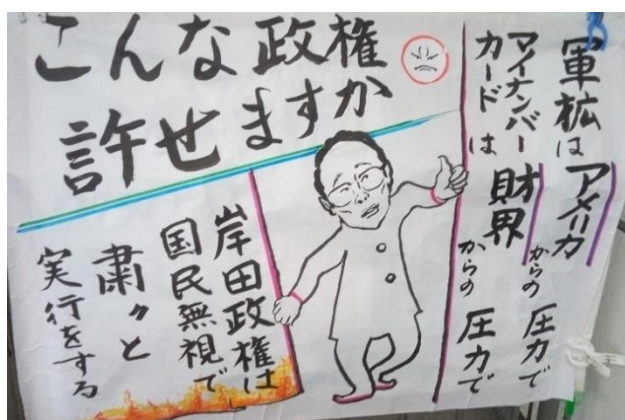 こんな政権か
許せますか
軍拡はアメリカからの圧力で
マイナンバーカードは財界からの圧力で
岸田政権は
国民無視で
粛々と
実行をする